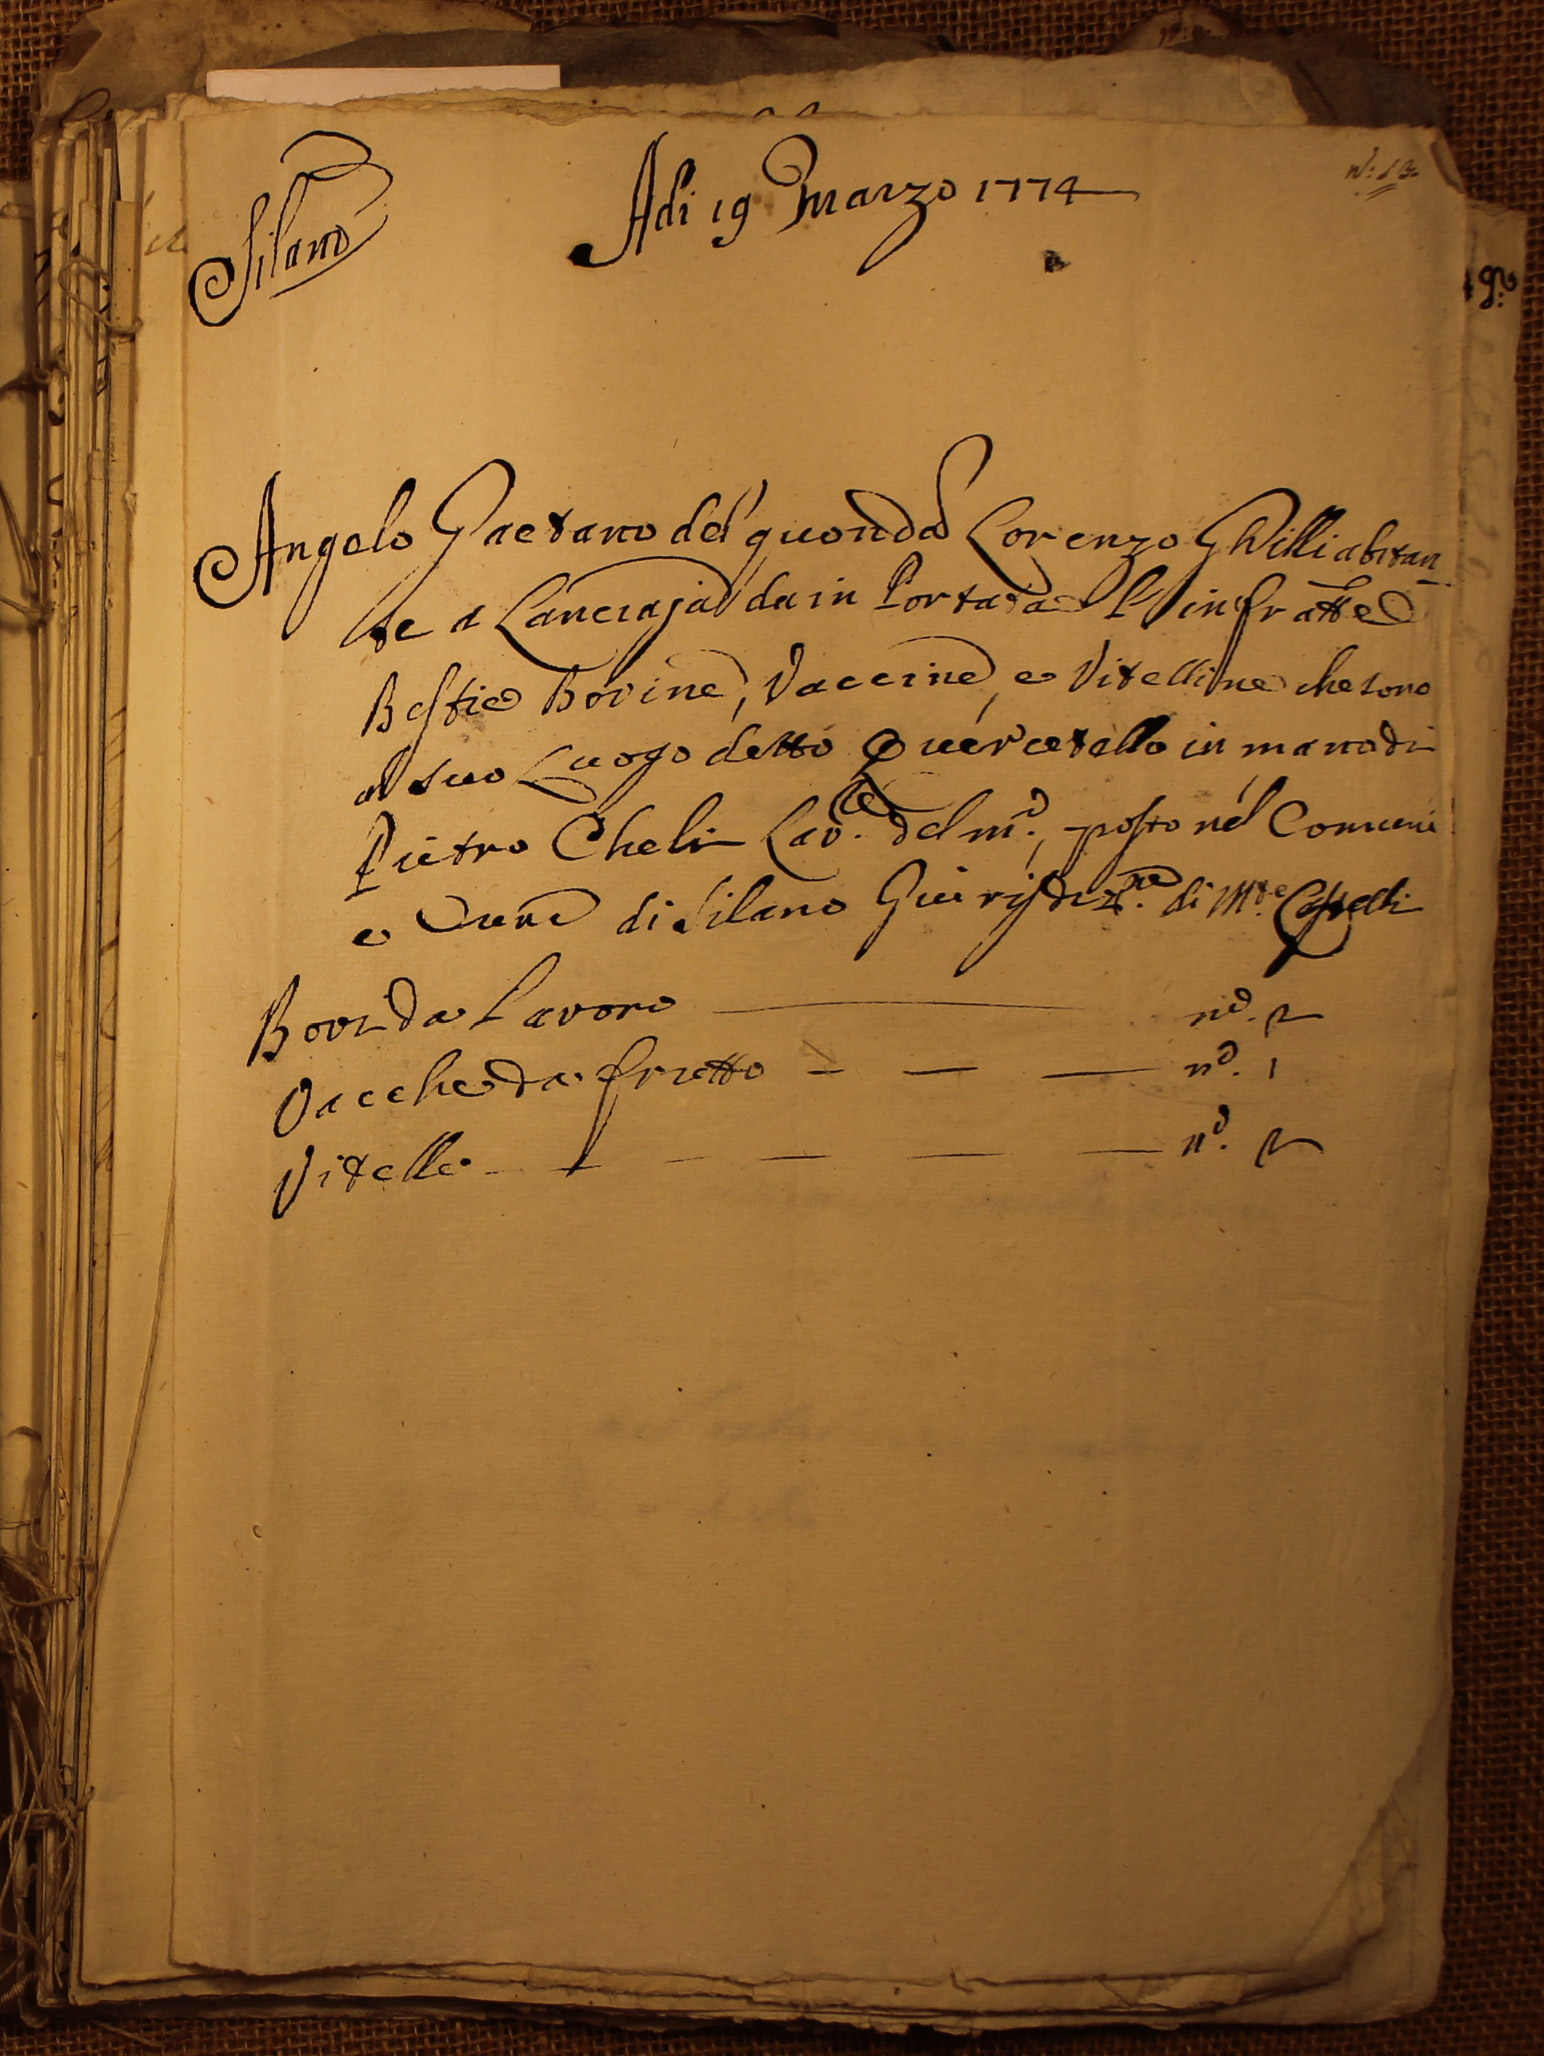 n.° 13
Silano
Adi 19 Marzo 1774
Angelo Gaetano del quonda Lorenzo Ghilli abitan
te a Lanciaja da in Portata l'infratte
Bestie Bovine, Vaccine, e Vitelline che sono
al suo Luogo detto Quercetello in mano di
Pietro Cheli Lav.re del md., posto nel Comune
e Cura di Silano Giurisdiz.ne di M.te Castelli
Bovi da Lavoro — nº. 2
Vacche da frutto — — — nº. 1
Vitelle — — — — nº. 2